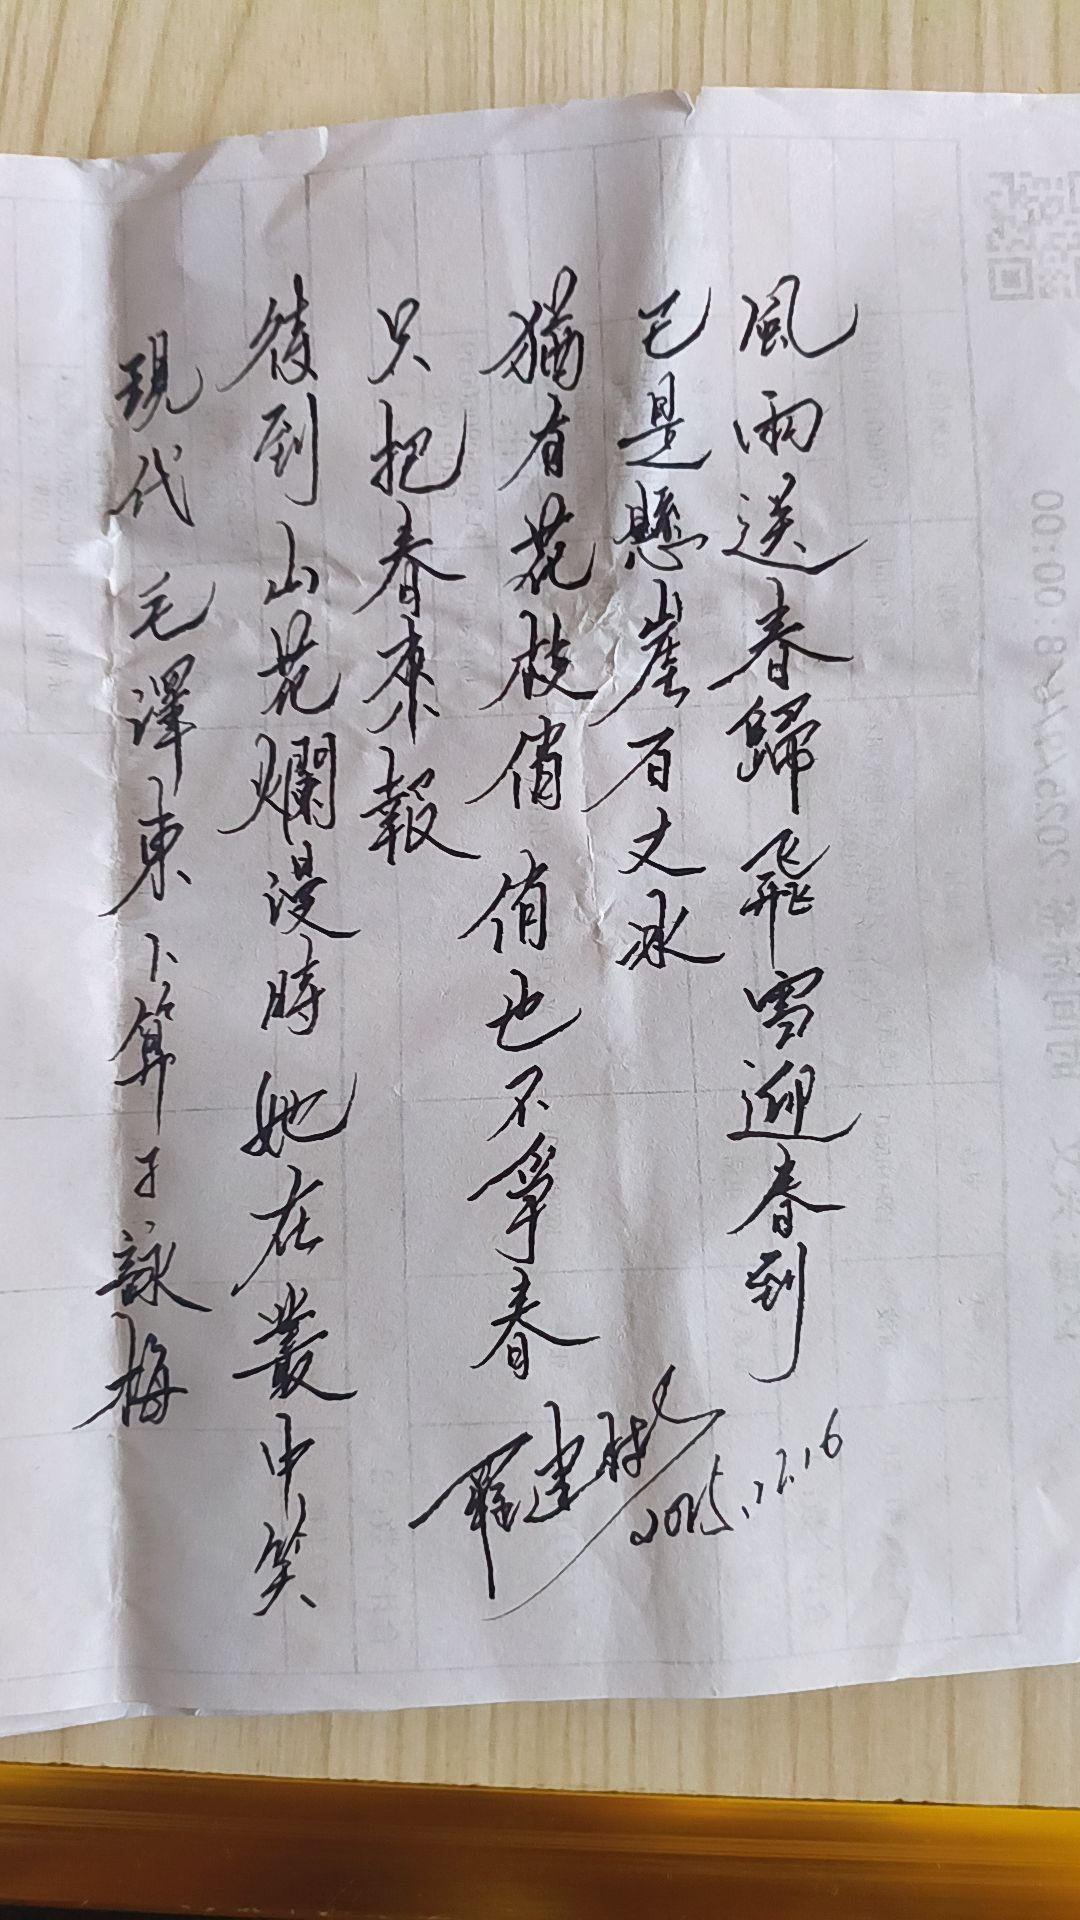 風雨送春歸飛雪迎春到
已是懸崖百丈冰
猶有花枝俏俏也不爭春
只把春來報
待到山花爛漫時她在叢中笑
現代毛澤東卜算子詠梅
2025.12.16